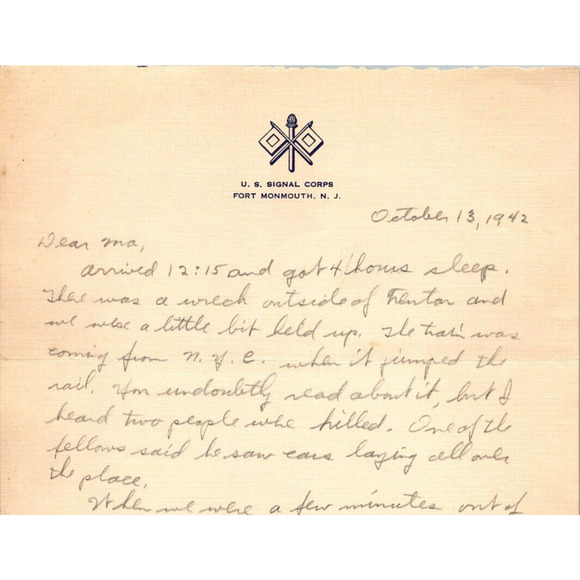 U. S. SIGNAL CORPS
FORT MONMOUTH, N. J.
October 13, 1942
Dear Ma,
Arrived 12:15 and got 4 hours sleep.
There was a wreck outside of Trenton and
we were a little bit held up. The train was
coming from N.Y.C. when it jumped the
rail. You undoubtly read about it, but I
heard two people were killed. One of the
fellows said he saw cars laying all over
the place.
When we were a few minutes out of